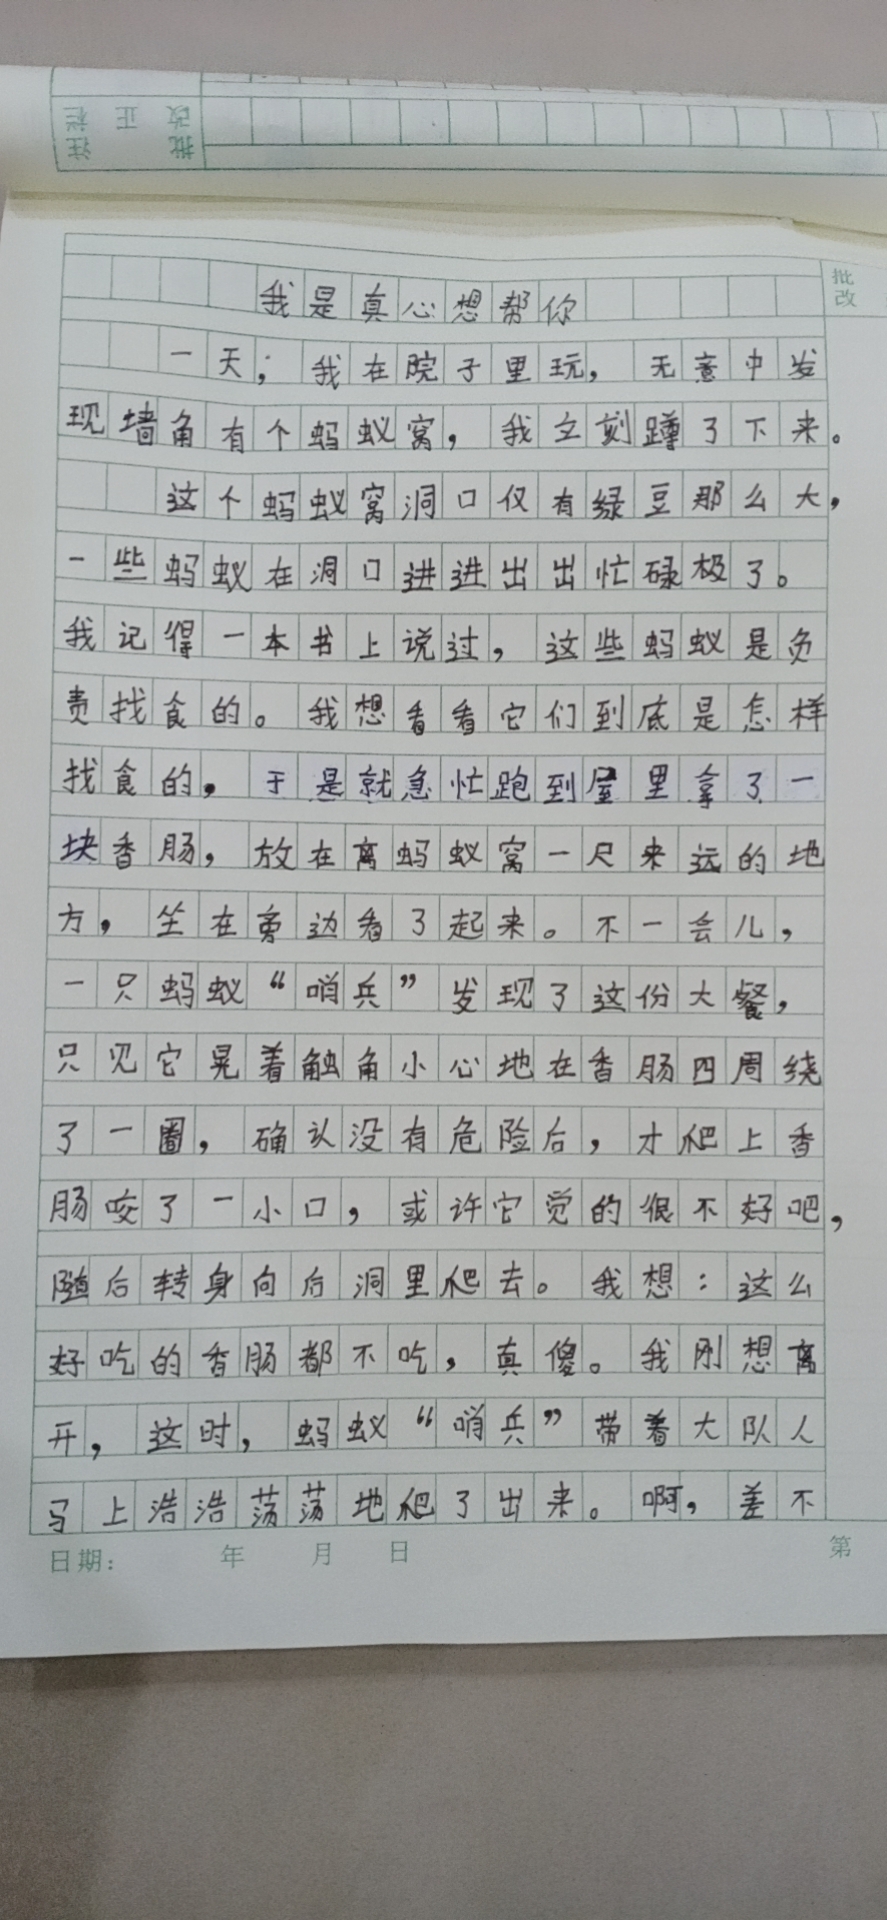 批改
正
注栏
批
改
我是真心想帮你
一天；我在院子里玩，无意中发
现墙角有个蚂蚁窝，我立刻蹲了下来。
这个蚂蚁窝洞口仅有绿豆那么大，
一些蚂蚁在洞口进进出出忙碌极了。
我记得一本书上说过，这些蚂蚁是负
责找食的。我想看看它们到底是怎样
找食的，于是就急忙跑到屋里拿了一
块香肠，放在离蚂蚁窝一尺来远的地
方，坐在旁边看了起来。不一会儿，
一只蚂蚁“哨兵”发现了这份大餐，
只见它晃着触角小心地在香肠四周绕
了一圈，确认没有危险后，才爬上香
肠咬了一小口，或许它觉的很不好吧，
随后转身向后洞里爬去。我想：这么
好吃的香肠都不吃，真傻。我刚想离
开，这时，蚂蚁“哨兵”带着大队人
马上浩浩荡荡地爬了出来。啊，差不
日期： 年 月 日 第